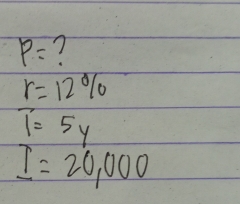 P=?
r=12%
T= 5y
I= 20,000